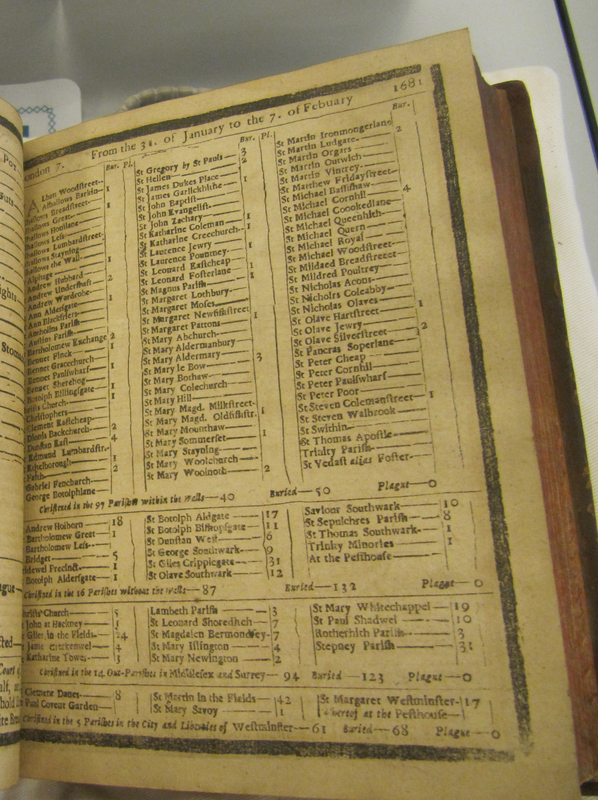 London 7. From the 31. of January to the 7. of Febuary 1681
Bur. Pl.
Alban Woodstreet
Alhallows Barkin 1
Alhallows Breadstreet 1
Alhallows Great
Alhallows Honilane
Alhallows Less
Alhallows Lumbardstreet
Alhallows Stayning
Alhallows the Wall 1
Alphage
Andrew Hubbard
Andrew Undershaft 2
Andrew Wardrobe 1
Ann Aldersgate
Ann Blackfriers
Antholins Parish
Austins Parish
Bartholomew Exchange 2
Bennet Finck 1
Bennet Gracechurch
Bennet Paulswharf
Bennet Sherehog
Botolph Billingsgate 1
Christs Church
Christophers
Clement Eastcheap
Dionis Backchurch 2
Dunstan East 4
Edmund Lumbardstr.
Ethelborough 1
Faith 2
Gabriel Fenchurch
George Botolphlane
Bur. Pl.
St Gregory by St Pauls 3
St Hellen 2
St James Dukes Place
St James Garlickhithe 1
St John Baptist
St John Evangelist
St John Zachary
St Katharine Coleman 1
St Katharine Creechurch 1
St Laurence Jewry 1
St Laurence Pountney
St Leonard Eastcheap
St Leonard Fosterlane 1
St Magnus Parish 1
St Margaret Lothbury
St Margaret Moses
St Margaret Newfishstreet 1
St Margaret Pattons
St Mary Abchurch
St Mary Aldermanbury
St Mary Aldermary 3
St Mary le Bow
St Mary Bothaw
St Mary Colechurch
St Mary Hill
St Mary Magd. Milkstreet
St Mary Magd. Oldfishstr. 1
St Mary Mounthaw
St Mary Sommerset 1
St Mary Stayning
St Mary Woolchurch
St Mary Woolnoth 2
Bur.
St Martin Ironmongerlane
St Martin Ludgate 2
St Martin Orgars
St Martin Outwich
St Martin Vintrey
St Matthew Fridaystreet
St Michael Bassishaw
St Michael Cornhil 4
St Michael Crookedlane
St Michael Queenhith
St Michael Quern
St Michael Royal
St Michael Woodstreet
St Mildred Breadstreet
St Mildred Poultrey
St Nicholas Acons
St Nicholas Coleabby
St Nicholas Olaves
St Olave Hartstreet 1
St Olave Jewry
St Olave Silverstreet 2
St Pancras Soperlane
St Peter Cheap
St Peter Cornhil
St Peter Paulswharf
St Peter Poor
St Steven Colemanstreet 1
St Steven Walbrook
St Swithin
St Thomas Apostle
Trinity Parish
St Vedast alias Foster
Christned in the 97 Parishes within the Walls—40 Buried—50 Plague—0
Andrew Holborn 18
Bartholomew Great 1
Bartholomew Less
Bridget 5
Bridewel Precinct 1
Botolph Aldersgate 1
St Botolph Aldgate 17
St Botolph Bishopsgate 11
St Dunstan West 6
St George Southwark 9
St Giles Cripplegate 31
St Olave Southwark 12
Saviour Southwark 10
St Sepulchres Parish 8
St Thomas Southwark 1
Trinity Minories 1
At the Pesthouse
Christned in the 16 Parishes without the Walls—87 Buried—132 Plague—0
Christs Church 5
John at Hackney 1
Giles in the Fields 24
James Clerkenwel 4
Katharine Tower 3
Lambeth Parish 3
St Leonard Shoreditch 7
St Magdalen Bermondsey 7
St Mary Islington 4
St Mary Newington 2
St Mary Whitechappel 19
St Paul Shadwel 10
Rotherhith Parish 3
Stepney Parish 31
Christned in the 14 Out-Parishes in Middlesex and Surrey—94 Buried—123 Plague—0
Clement Danes 8
Paul Covent Garden
St Martin in the Fields 42
St Mary Savoy 1
St Margaret Westminster 17
Whereof at the Pesthouse
Christned in the 5 Parishes in the City and Liberties of Westminster—61 Buried—68 Plague—0